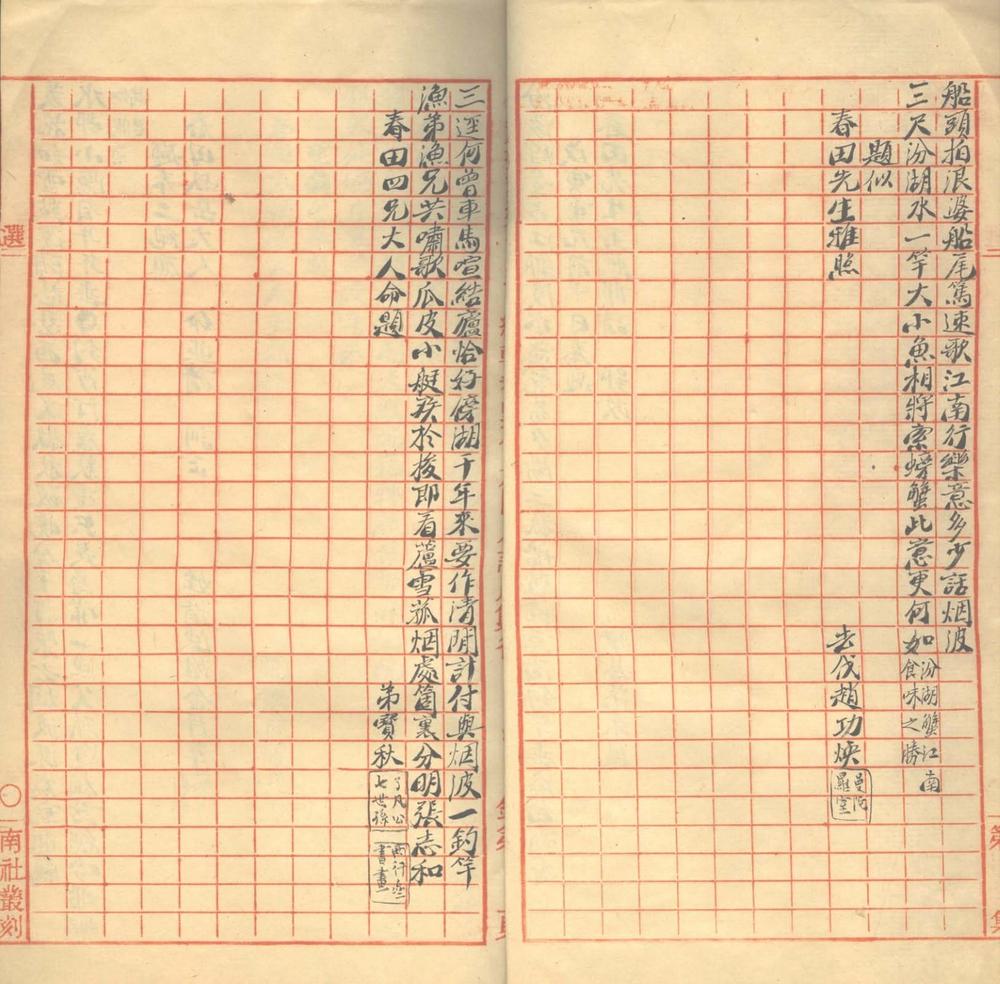 船頭拍浪婆船尾篤速歌江南行樂意多少話烟波
三尺汾湖水一竿大小魚相將索螃蟹此意更何如
汾湖蟹江南
食味之勝
題似
春田先生雅照
去伐趙功煥
曼陀
羅室
三逕何曾車馬喧結廬恰好傍湖干年來要作清閒計付與烟波一釣竿
漁弟漁兄共嘯歌瓜皮小艇疾於梭即看蘆雪菰烟處箇裏分明張志和
春田四兄大人命題
弟寶秋
了凡公
七世孫
書畫
選
南社叢刻